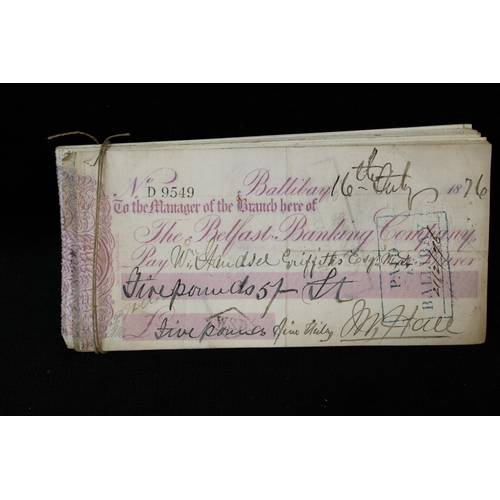 No. D 9549 Ballibay 16th July 1876
To the Manager of the Branch here of
The Belfast Banking Company,
Pay Wm. Handsel Griffiths Esq. or Bearer
Five pounds 5/- St
£ Five pounds five
PAID
BALLIBAY